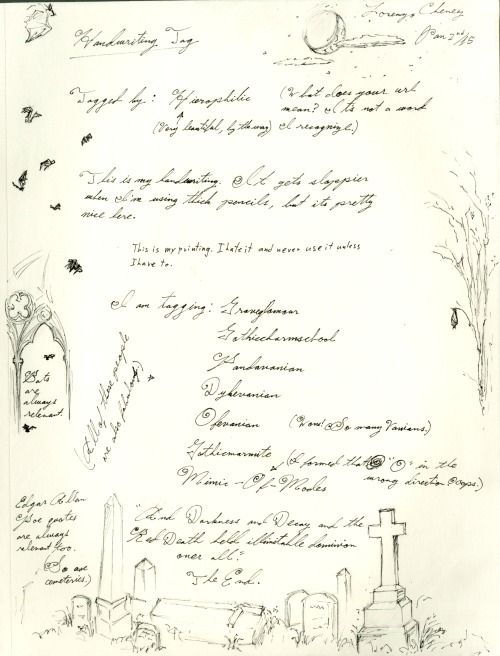 Lorenzo Cheney
Jan 2nd/15
Handwriting Tag
Tagged by: Hierophilic
(Very beautiful, by the way)
(What does your url
mean? It's not a word
I recognize.)
This is my handwriting. It gets sloppier
when I'm using thick pencils, but its pretty
nice here.
This is my printing. I hate it and never use it unless
I have to.
I am tagging: Graveglamour
Gothiccharmschool
Pandavanian
Dykevanian
Ofevanian (Wow! So many Vanians.)
Gothicmarmite
Mimic-Of-Modes
(I formed that "O" in the
wrong direction. Oops.)
(All of these people
are also
Bats
are
always
relevant.
Edgar Allan
Poe quotes
are always
relevant too.
(So are
cemeteries.)
"And Darkness and Decay and the
Red Death held illimitable dominion
over all."
The End.